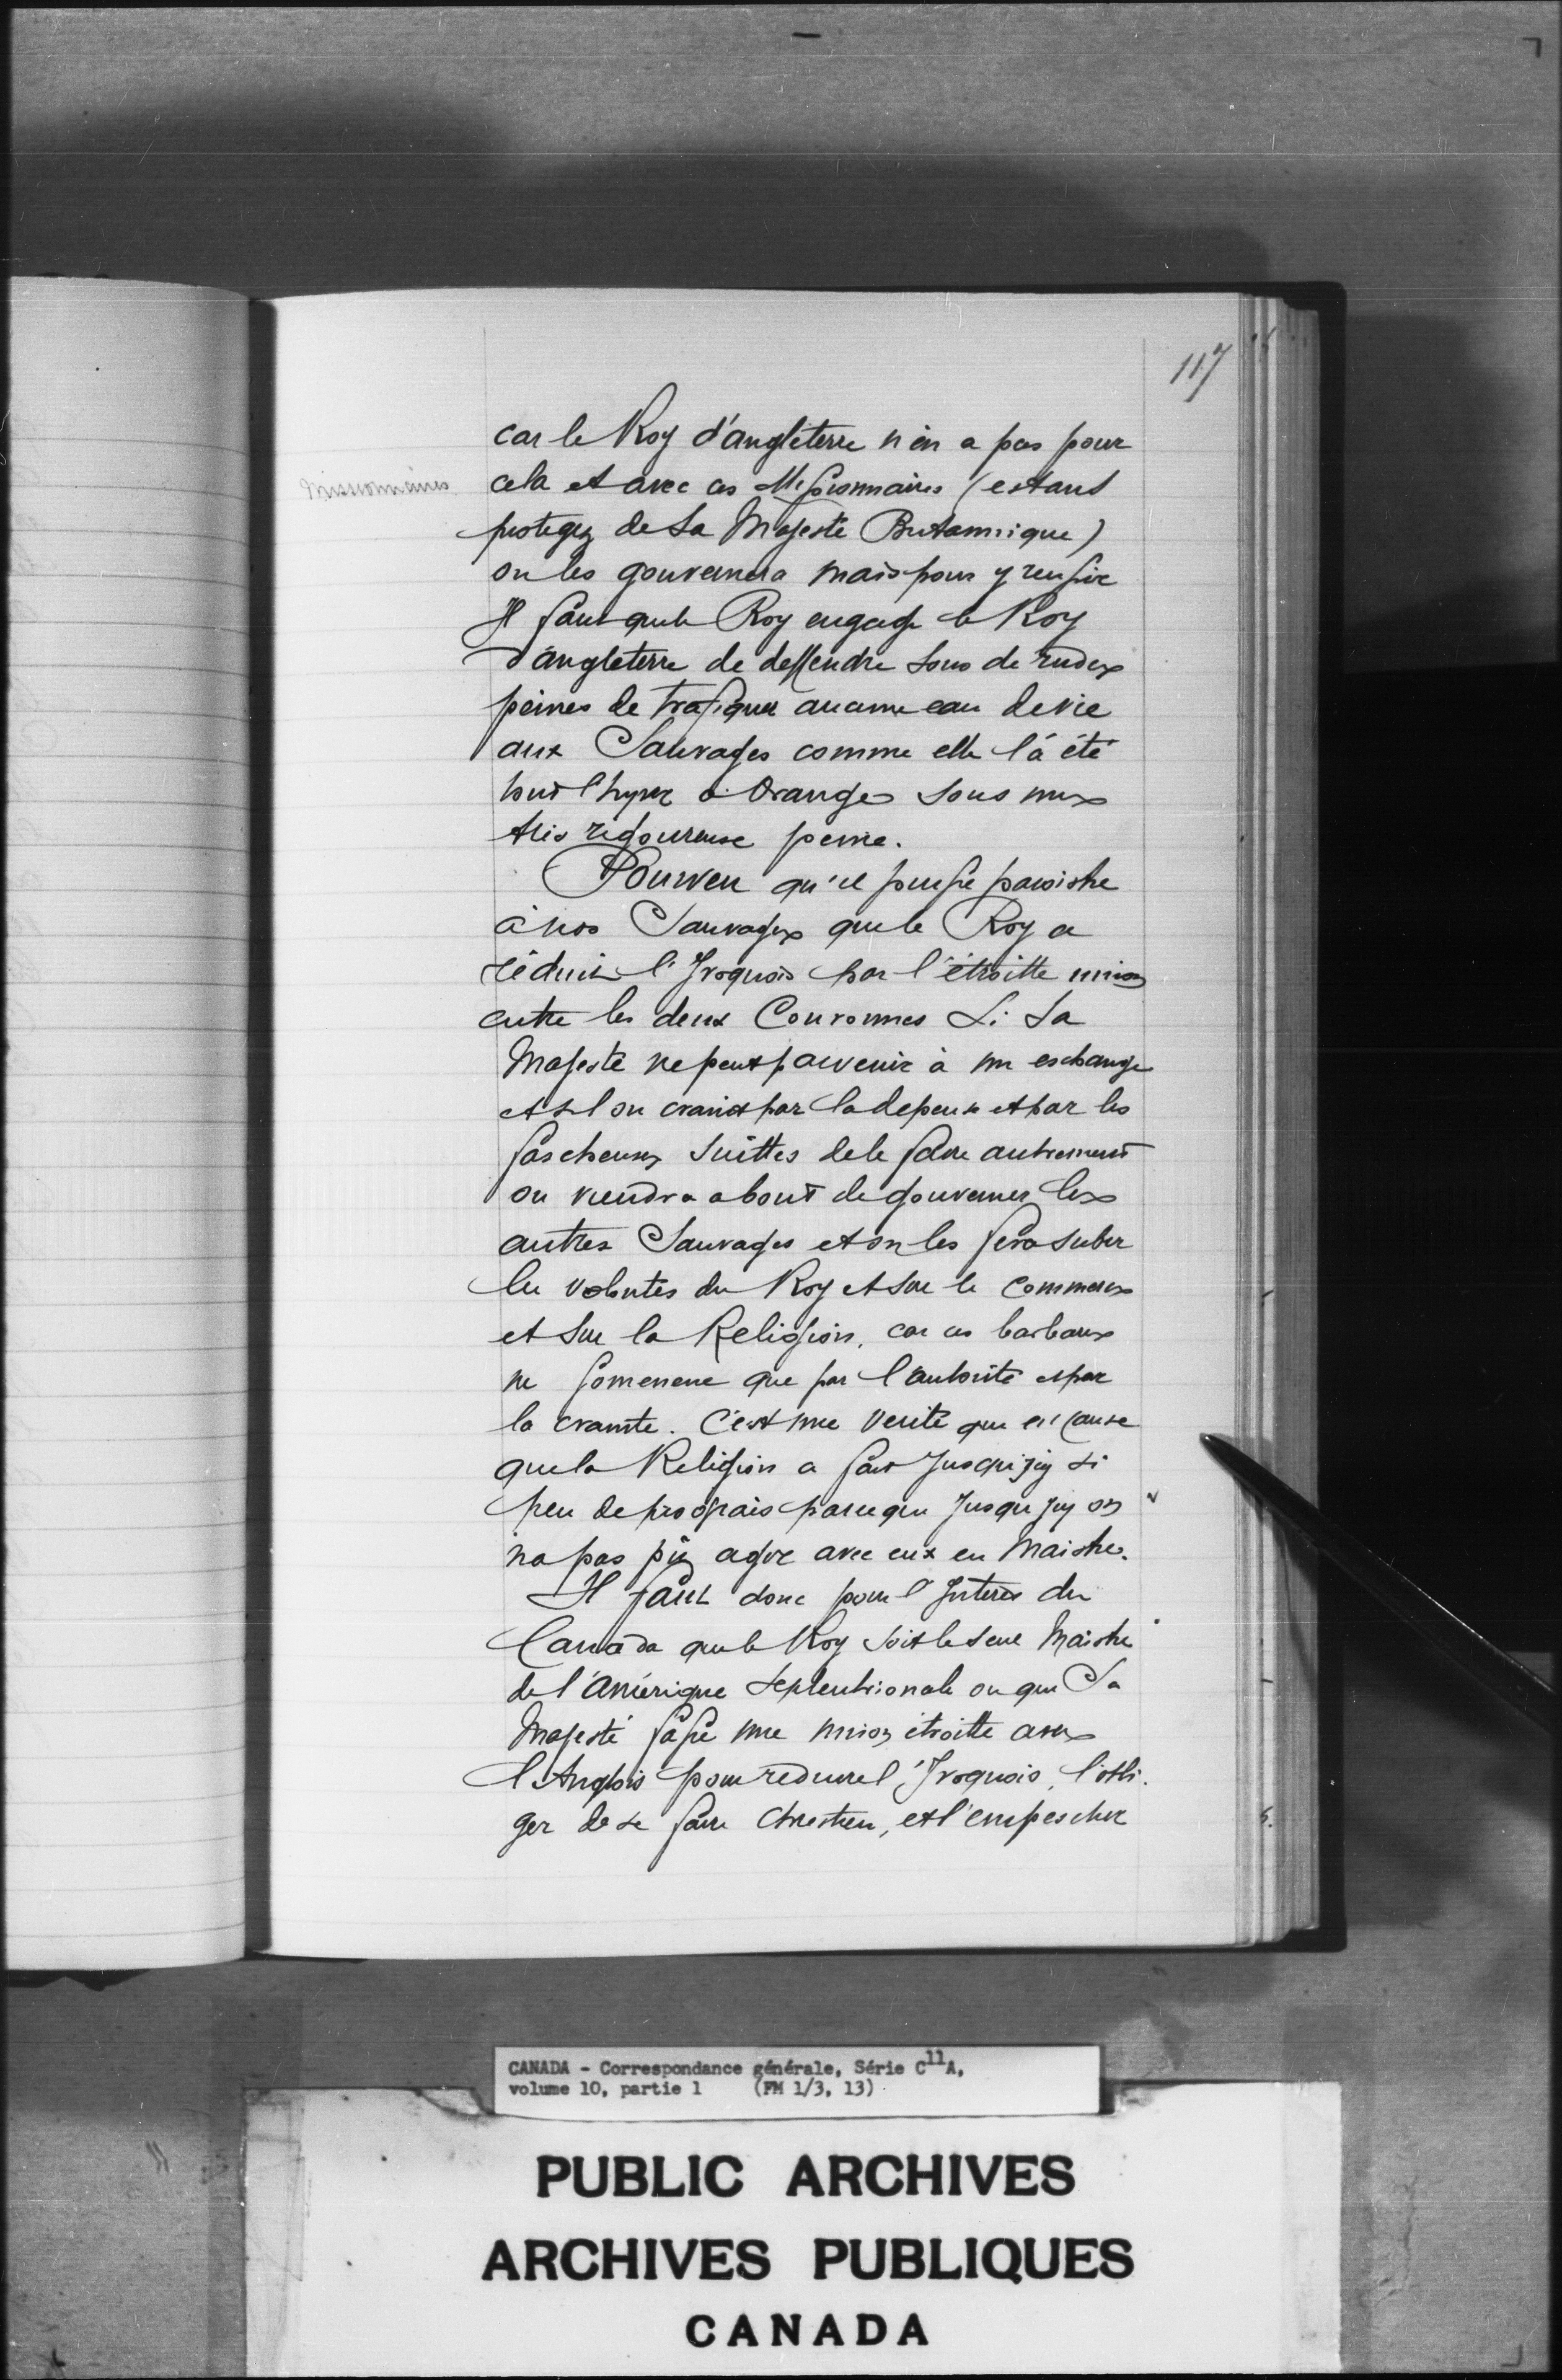 117
car le Roy d'angleterre n'en a pas pour
Missionnaires
cela et avec ces Missionnaires (estant
protegez de Sa Majesté Britannique)
on les gouvernera mais pour y reussir
Il faut que le Roy engage le Roy
d'angleterre de deffendre sous de rudes
peines de trafiquer aucune eau de vie
aux Sauvages comme elle l'a été
tout l'hyver a Orange sous une
très rigoureuse peine.
Pourveu qu'il puisse paroistre
à nos Sauvages que le Roy a
réduit l'Iroquois par l'étroitte union
entre les deux Couronnes Si Sa
Majesté ne peut parvenir à un eschange
et si l'on craint par la depense et par les
fascheuses suittes de le faire autrement
on viendra a bout de gouverner les
autres Sauvages et on les fera subir
les volontés du Roy et sur le commerce
et sur la Religion, car ces barbares
ne se menent que par l'autorité et par
la crainte. C'est une verité qui est cause
que la Religion a fait jusqu'icy si
peu de prograis parce que jusqu'icy on
n'a pas pû agir avec eux en Maistre.
Il faut donc pour l'Interest du
Canada que le Roy soit le seul Maistre
de l'amérique Septentrionale ou que Sa
Majesté fasse une union étroitte avec
l'Anglois pour reduire l'Iroquois, l'obli-
ger de se faire Chrestien, et l'empescher
CANADA - Correspondance générale, Série C11A,
volume 10, partie 1 (FM 1/3, 13)
PUBLIC ARCHIVES
ARCHIVES PUBLIQUES
CANADA